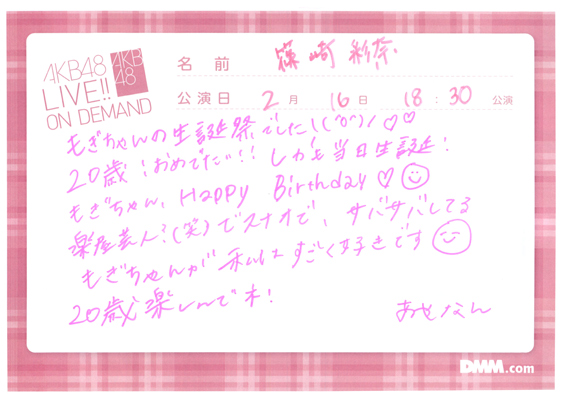 AKB48
LIVE!!
ON DEMAND
AKB
48
名前 篠崎彩奈
公演日 2月 16日 18:30 公演
もぎちゃんの生誕祭でした\(^o^)/♡♡
20歳!おめでたい!! しかも当日生誕!
もぎちゃん、Happy Birthday♡☺
楽屋芸人?(笑)でスナオで、サバサバしてる
もぎちゃんが私はすごく好きです☺
20歳楽しんでネ!
あやなん
DMM.com